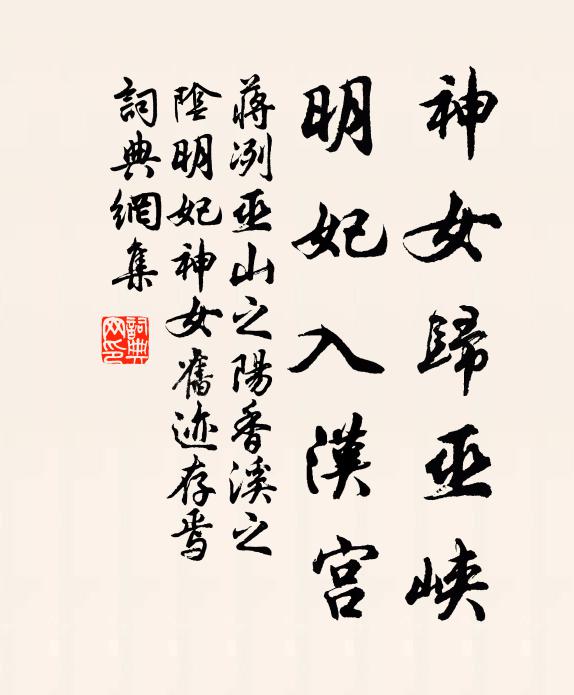 神女歸巫峽
明妃入漢宫
蔣冽巫山之陽香溪之
陰明妃神女舊迹存焉
詞典網集
詞典网印